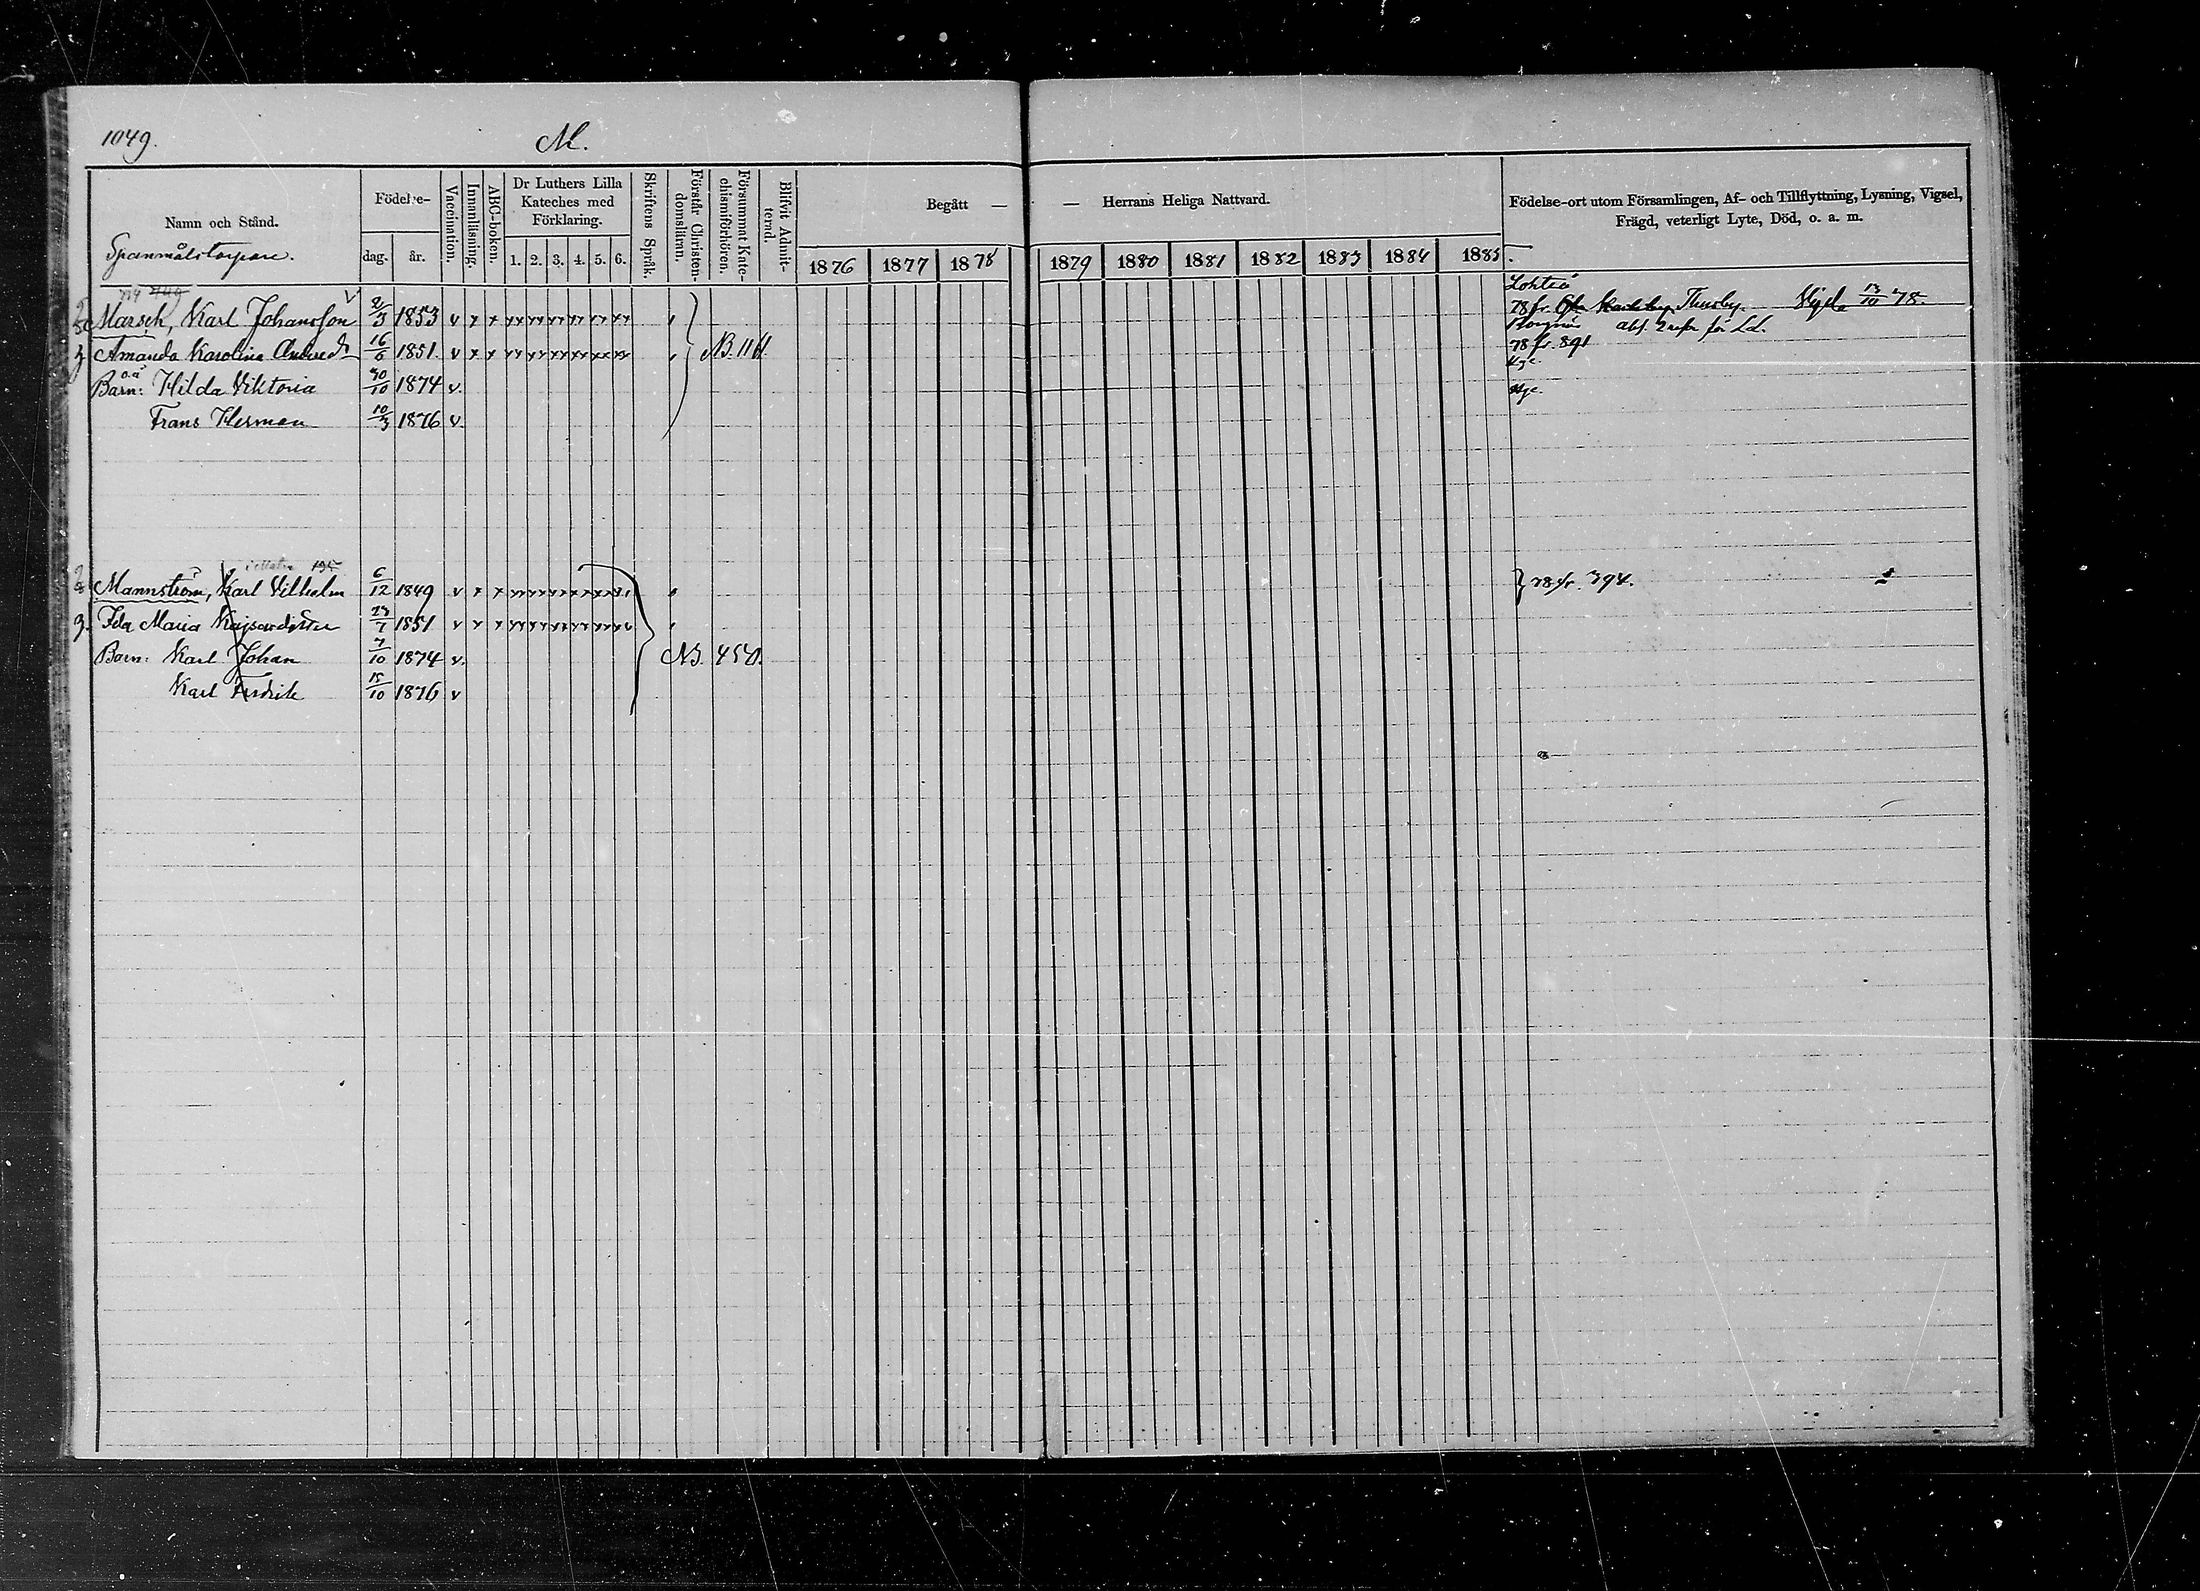 1049.
M.
Namn och Stånd.
Spanmålstorpare.
Födelse-
dag.
år.
Vaccination.
Innanläsning.
ABC-boken.
Dr Luthers Lilla
Kateches med
Förklaring.
1. 2. 3. 4. 5. 6.
Skriftens Språk.
Förstår Christen-
domsläran.
Försummat Kate-
chismiförhören.
Blifvit Admit-
terad.
Begått —
— Herrans Heliga Nattvard.
1876 1877 1878 1879 1880 1881 1882 1883 1884 1885.
Födelse-ort utom Församlingen, Af- och Tillflyttning, Lysning, Vigsel,
Frägd, veterligt Lyte, Död, o. a. m.
Lohteå
Marsch, Karl Johansson 2/3 1853 v x x 78 fr. Thusby. Vigda 13/10 78.
Amanda Karolina 16/6 1851. v x x NB. 1161. 78 fr. 891
o.ä.
Barn: Hilda Viktoria 30/10 1874 v.
Frans Herman 10/3 1876 v.
Mannström, Karl Vilhelm 6/12 1849 v x x 78 fr. 394.
3. Ida Maria Kajsasdotter 1851 v x x
Barn: Karl Johan 7/10 1874 v. NB. 450.
Karl Fredrik 15/10 1876 v